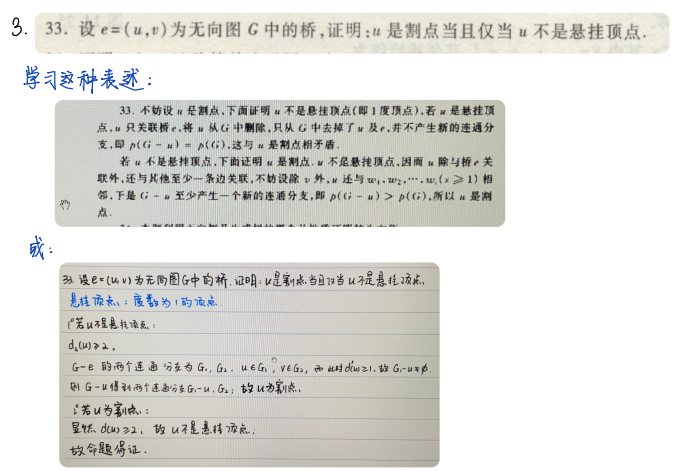 3. 33. 设 e=(u,v)为无向图 G 中的桥,证明:u 是割点当且仅当 u 不是悬挂顶点.
学习这种表述:
33. 不妨设 u 是割点,下面证明 u 不是悬挂顶点(即 1 度顶点),若 u 是悬挂顶
点,u 只关联桥 e,将 u 从 G 中删除,只从 G 中去掉了 u 及 e,并不产生新的连通分
支,即 p(G - u) = p(G),这与 u 是割点相矛盾.
若 u 不是悬挂顶点,下面证明 u 是割点. u 不是悬挂顶点,因而 u 除与桥 e 关
联外,还与其他至少一条边关联,不妨设除 v 外,u 还与 w₁,w₂,⋯,wₛ(s ⩾ 1) 相
邻,于是 G - u 至少产生一个新的连通分支,即 p(G - u) > p(G),所以 u 是割
点.
或:
33. 设 e=(u,v) 为无向图G中的桥.证明:u是割点当且仅当u不是悬挂顶点.
悬挂顶点:度数为1的顶点.
1°若u不是悬挂顶点:
d_G(u)≥2,
G-e 的两个连通分支为 G₁,G₂. u∈G₁,v∈G₂,而此时d(u)≥1,故 G₁-u≠∅.
则 G-u得到两个连通分支G₁-u,G₂;故u为割点.
2°若u为割点:
显然 d(u)≥2,故u不是悬挂顶点.
故命题得证.